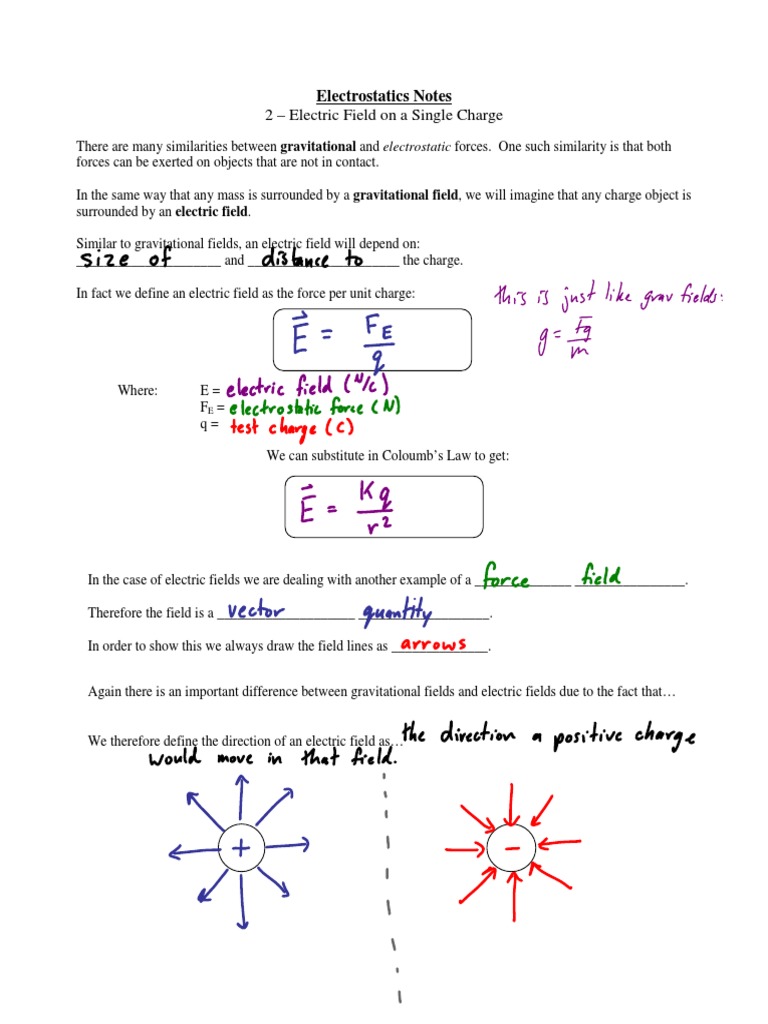 Electrostatics Notes
2 – Electric Field on a Single Charge
There are many similarities between gravitational and electrostatic forces. One such similarity is that both
forces can be exerted on objects that are not in contact.
In the same way that any mass is surrounded by a gravitational field, we will imagine that any charge object is
surrounded by an electric field.
Similar to gravitational fields, an electric field will depend on:
size of and distance to the charge.
In fact we define an electric field as the force per unit charge:
this is just like grav fields:
g = Fg/m
E⃗ = F_E/q
Where: E = electric field (N/C)
F_E = electrostatic force (N)
q = test charge (C)
We can substitute in Coloumb's Law to get:
E⃗ = Kq/r²
In the case of electric fields we are dealing with another example of a force field.
Therefore the field is a vector quantity.
In order to show this we always draw the field lines as arrows.
Again there is an important difference between gravitational fields and electric fields due to the fact that…
We therefore define the direction of an electric field as… the direction a positive charge
would move in that field.
+ -